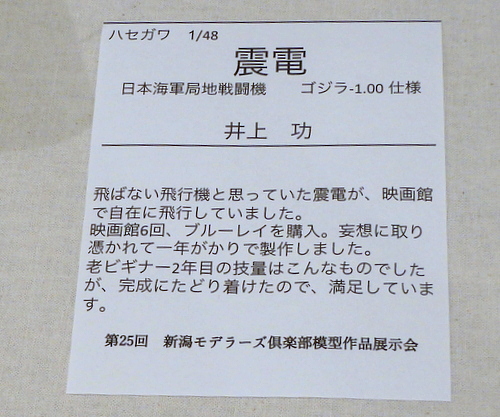 ハセガワ　1/48
震電
日本海軍局地戦闘機　　ゴジラ-1.00 仕様
井上　功
飛ばない飛行機と思っていた震電が、映画館
で自在に飛行していました。
映画館6回、ブルーレイを購入。妄想に取り
憑かれて一年がかりで製作しました。
老ビギナー2年目の技量はこんなものでした
が、完成にたどり着けたので、満足していま
す。
第25回　新潟モデラーズ倶楽部模型作品展示会